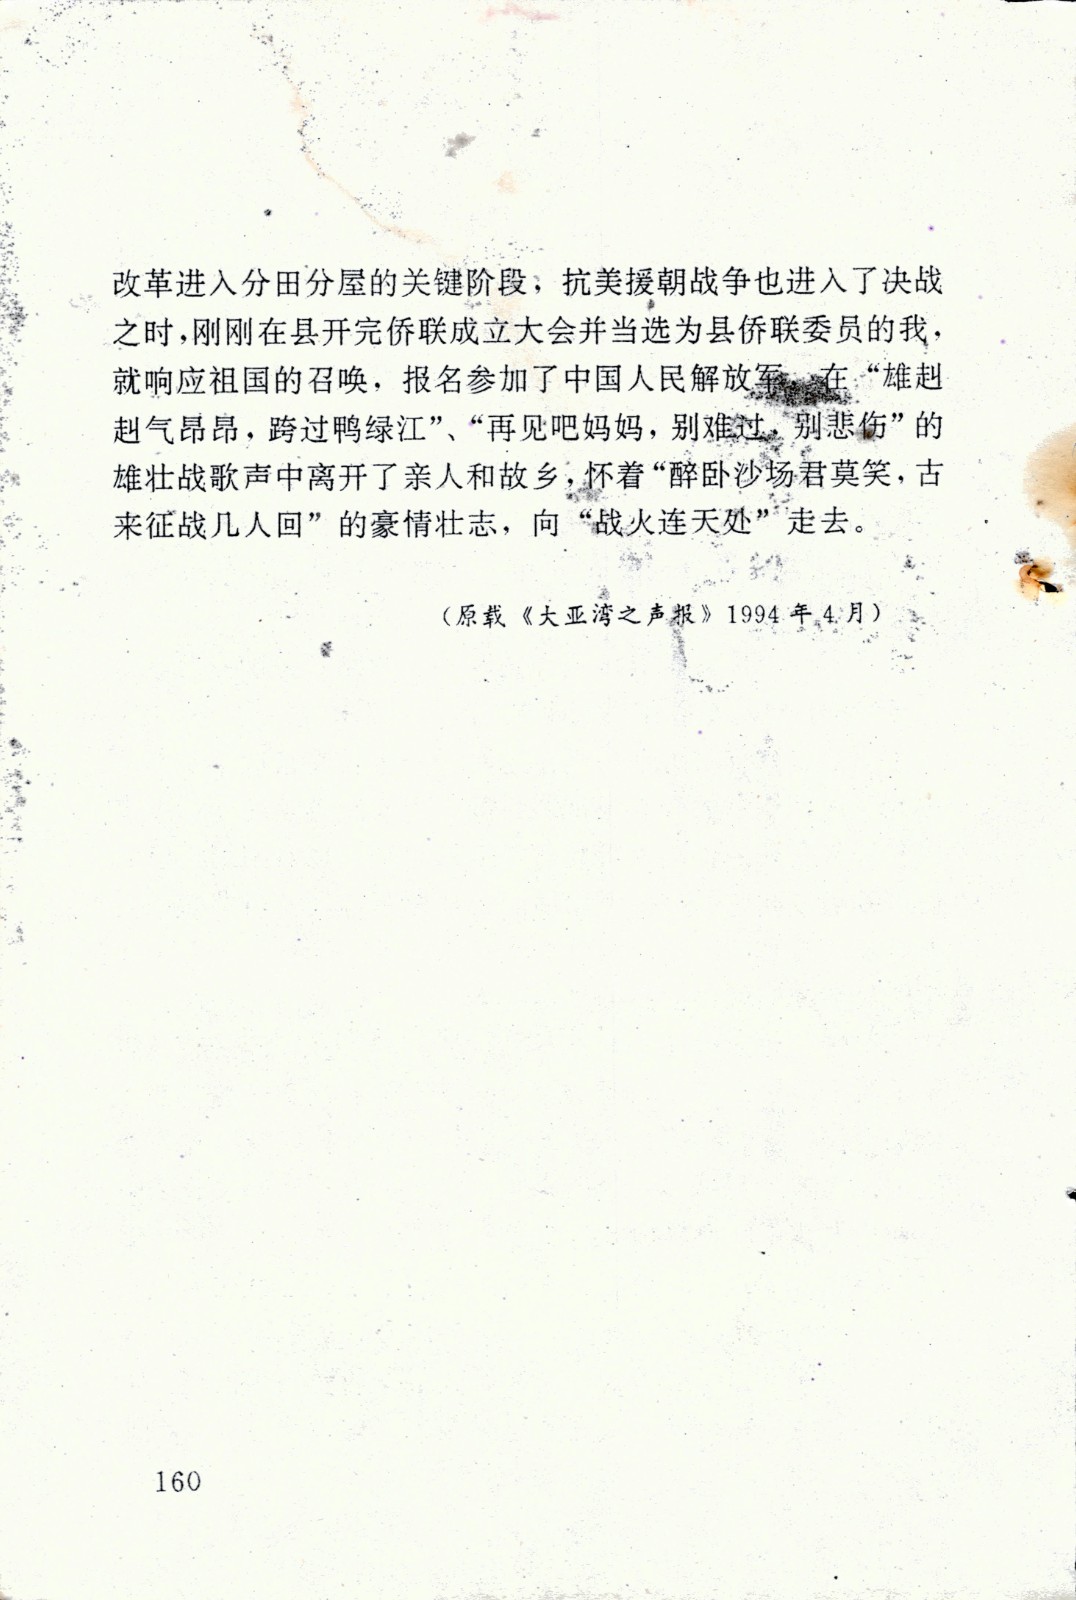 改革进入分田分屋的关键阶段，抗美援朝战争也进入了决战
之时，刚刚在县开完侨联成立大会并当选为县侨联委员的我，
就响应祖国的召唤，报名参加了中国人民解放军。在“雄赳
赳气昂昂，跨过鸭绿江”、“再见吧妈妈，别难过，别悲伤”的
雄壮战歌声中离开了亲人和故乡，怀着“醉卧沙场君莫笑，古
来征战几人回”的豪情壮志，向“战火连天处”走去。
（原载《大亚湾之声报》1994年4月）
160